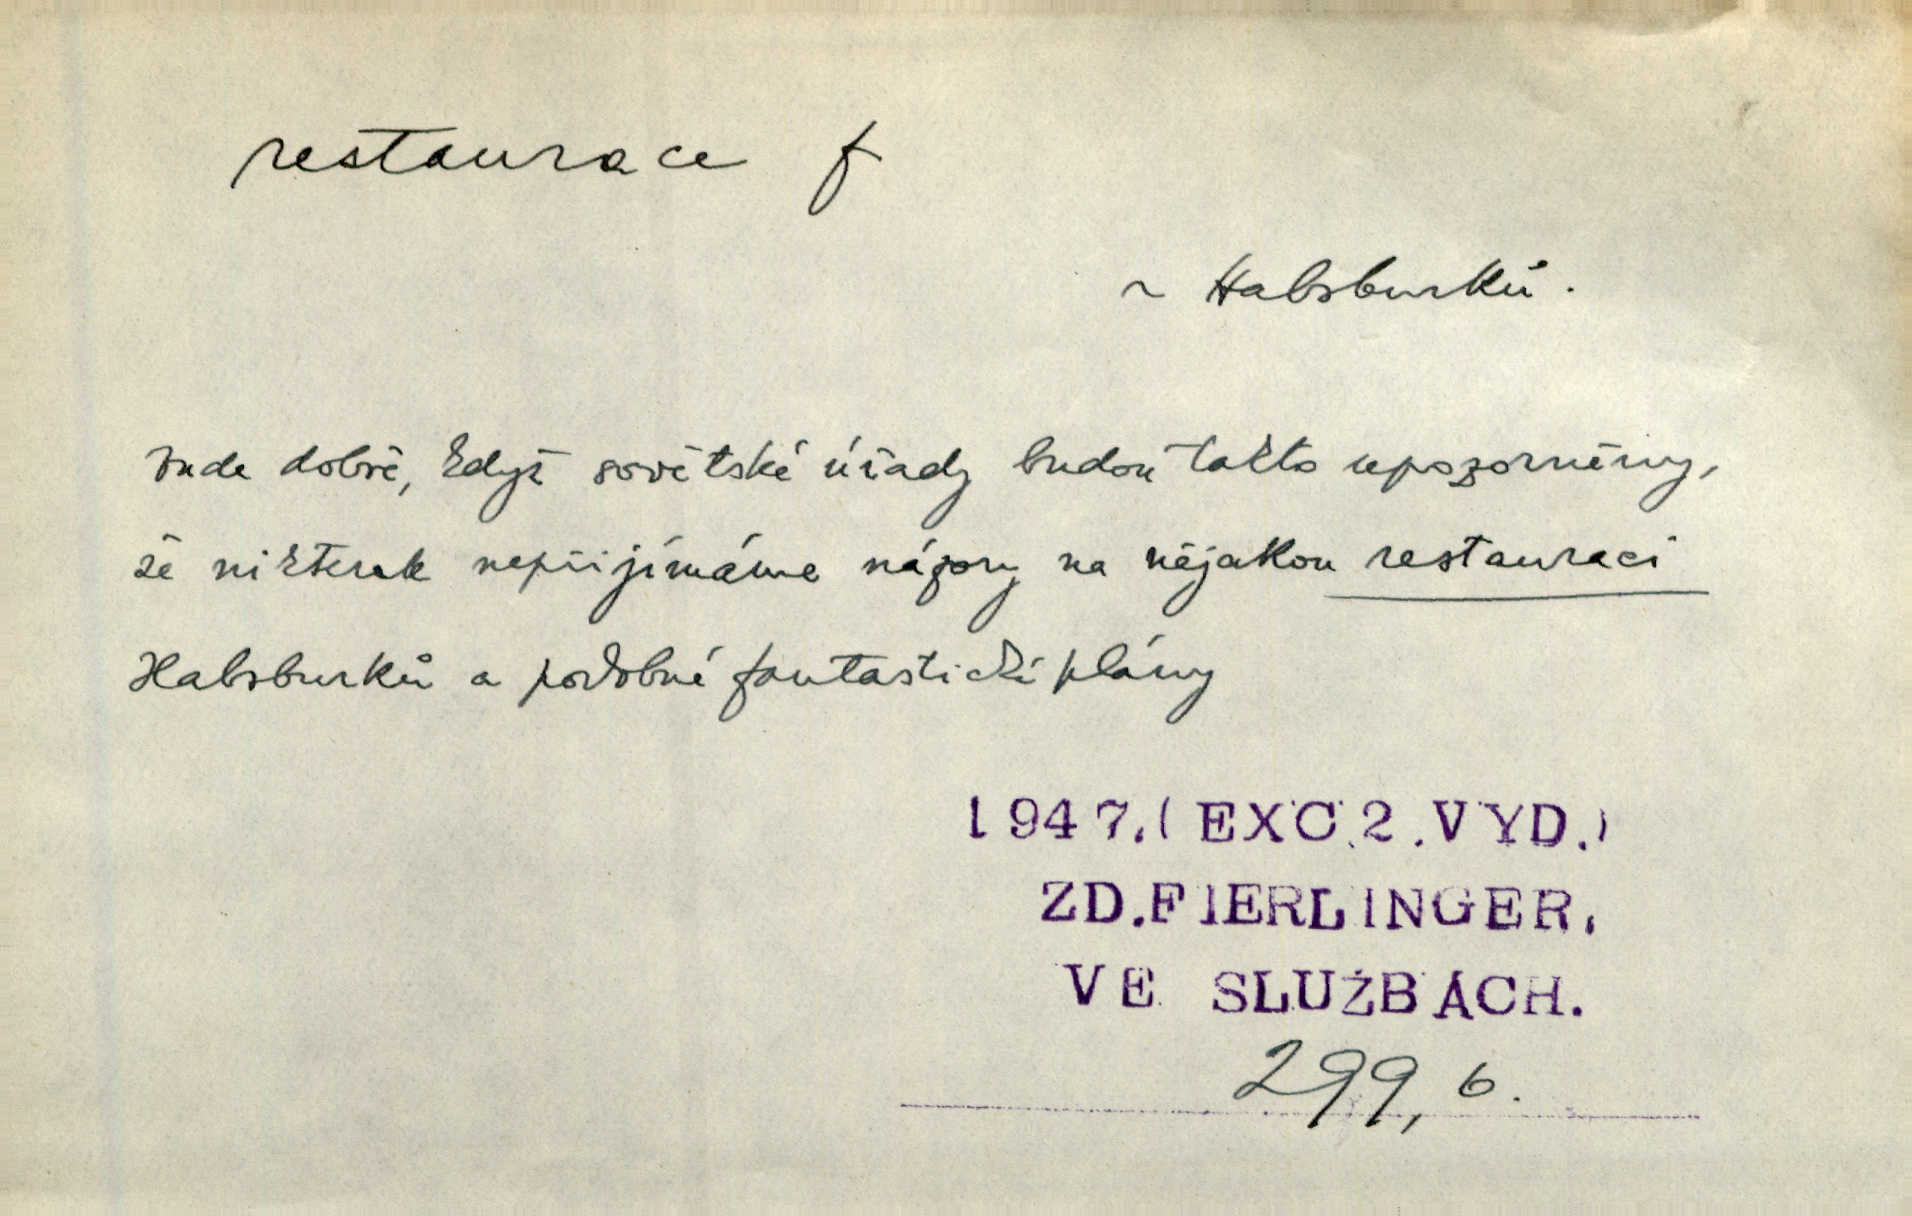 restaurace f
~ Habsburků.
bude dobře, když sovětské úřady budou takto upozorněny,
že nikterak nepřijímáme názory na nějakou restauraci
Habsburků a podobné fantastické plány
1947.(EXC.2.VYD.)
ZD.FIERLINGER,
VE SLUŽBÁCH.
299, 6.